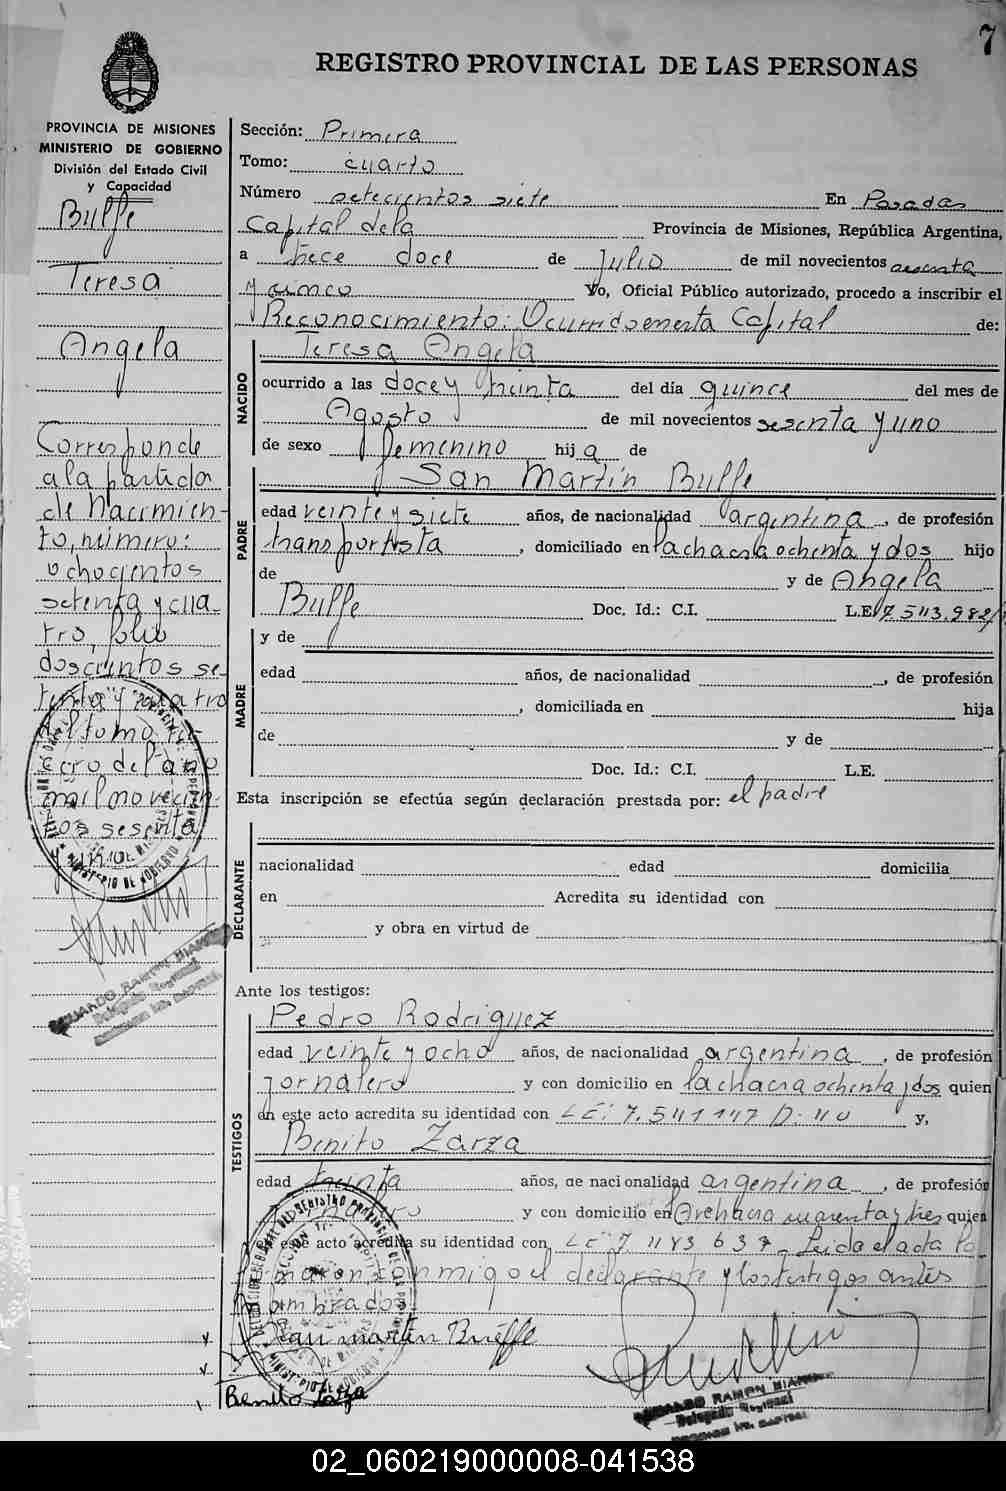 7
REGISTRO PROVINCIAL DE LAS PERSONAS
PROVINCIA DE MISIONES
MINISTERIO DE GOBIERNO
División del Estado Civil
y Capacidad
Bulfe
Teresa
Angela
Corresponde
a la partida
de Nacimien-
to, número:
ochocientos
setenta y cua-
tro, folio
doscientos se-
tenta y cuatro
del tomo ter-
cero del año
mil novecien-
tos sesenta
y uno
EDUARDO RAMON MIAN
Delegado Regional
Sección: Primera
Tomo: cuarto
Número setecientos siete En Posadas
Capital de la Provincia de Misiones, República Argentina,
a trece doce de Julio de mil novecientos sesenta
y cinco Yo, Oficial Público autorizado, procedo a inscribir el
Reconocimiento: Ocurrido en esta Capital de:
NACIDO
Teresa Angela
ocurrido a las doce y treinta del día quince del mes de
Agosto de mil novecientos sesenta y uno
de sexo femenino hija de
PADRE
San Martín Bulfe
edad veinte y siete años, de nacionalidad argentina, de profesión
transportista, domiciliado en la chacra ochenta y dos hijo
de y de Angela
Bulfe Doc. Id.: C.I. L.E. 7.543.982
MADRE
y de
edad años, de nacionalidad , de profesión
, domiciliada en hija
de y de
Doc. Id.: C.I. L.E.
Esta inscripción se efectúa según declaración prestada por: el padre
DECLARANTE
nacionalidad edad domicilia
en Acredita su identidad con
y obra en virtud de
Ante los testigos:
TESTIGOS
Pedro Rodriguez
edad veinte y ocho años, de nacionalidad argentina, de profesión
jornalero y con domicilio en la chacra ochenta y dos quien
en este acto acredita su identidad con LE: 7.541147 D.M 40 y,
Benito Zarza
edad treinta años, de nacionalidad argentina, de profesión
y con domicilio en chacra cuarenta y tres quien
en este acto acredita su identidad con LE 7 Leido el acta la
firmaron conmigo el declarante y los testigos antes
nombrados
San martin Bulffe
Benito Zarza
EDUARDO RAMON MIAN
Delegado Regional
02_060219000008-041538